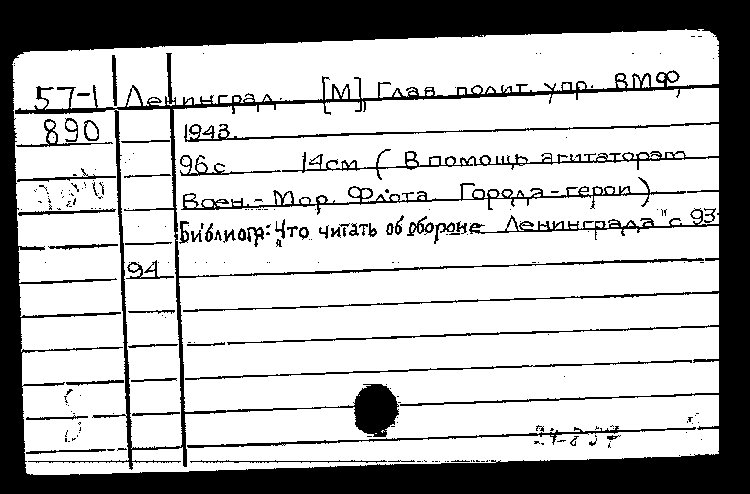 57-1 Ленинград. [М], Глав. полит. упр. ВМФ,
890 1943.
96 с. 14 см ( В помощь агитаторам
Воен.-Мор. Флота. Города-герои)
Библиогр: "Что читать об обороне Ленинграда" с 93-
94